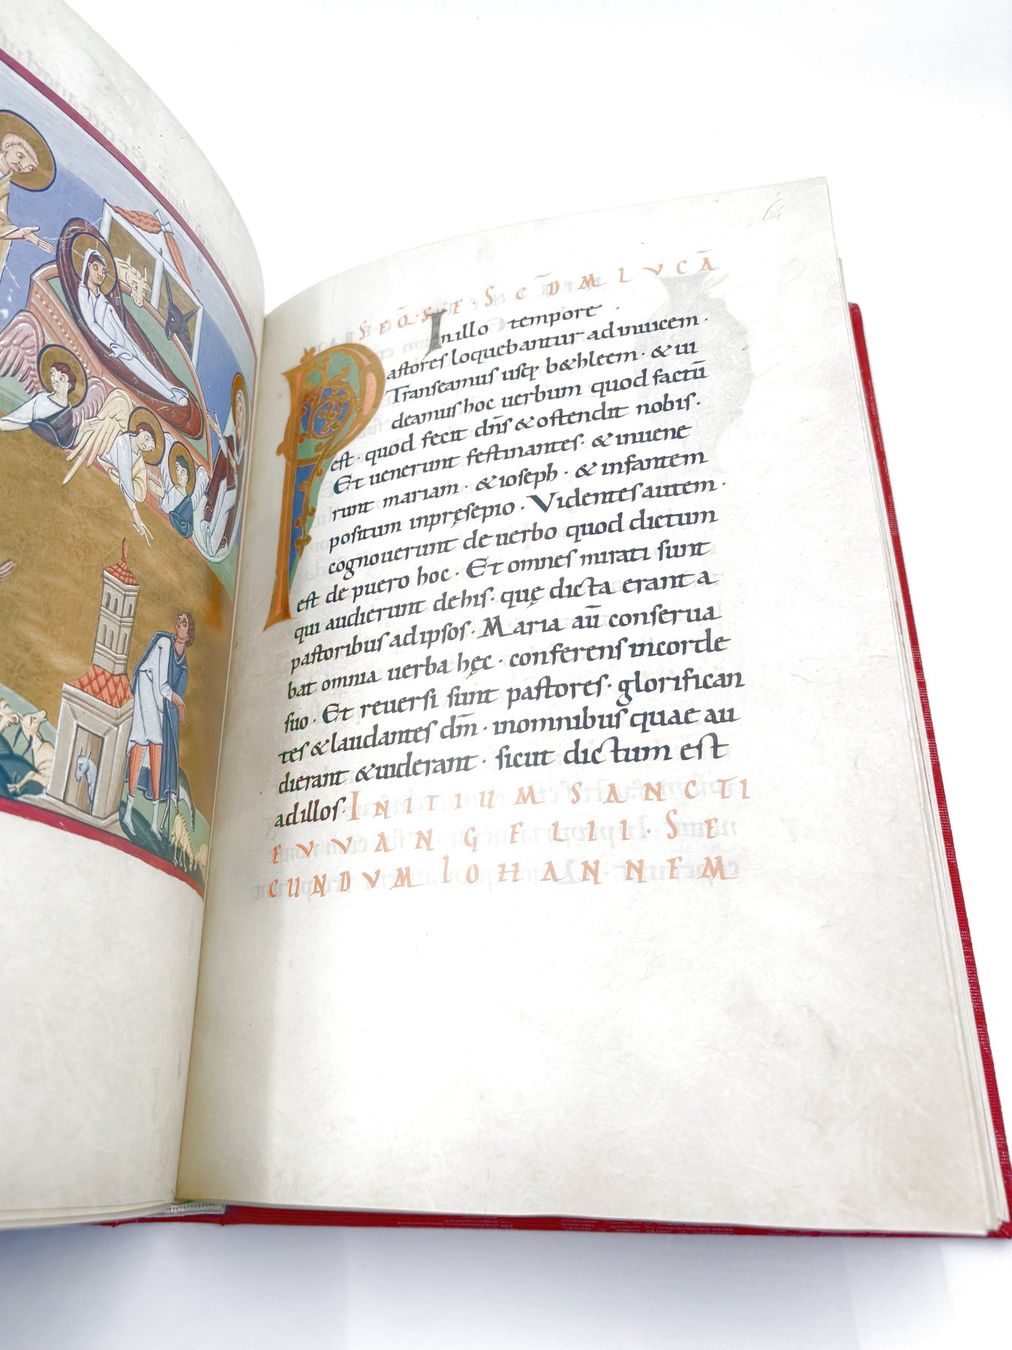 SEQ̄. S EV SCDM LVCĀ
In illo tempore ·
Pastores loquebantur adinuicem ·
Transeamus usq; bethleem · & ui
deamus hoc uerbum quod factū
est · quod fecit dn̄s & ostendit nobis ·
Et uenerunt festinantes · & inuene
runt mariam · & ioseph · & infantem
positum inpręsepio · Videntes autem ·
cognouerunt de uerbo quod dictum
est de puero hoc · Et omnes mirati sunt
qui audierunt dehis · quę dicta erant a
pastoribus adipsos · Maria aū conserua
bat omnia uerba hęc · conferens incorde
suo · Et reuersi sunt pastores · glorifican
tes & laudantes dm̄ · inomnibus quae au
dierant & uiderant · sicut dictum est
adillos · INITIUM SANCTI
EVVANGELII · SE
CUNDVM IOHANNEM